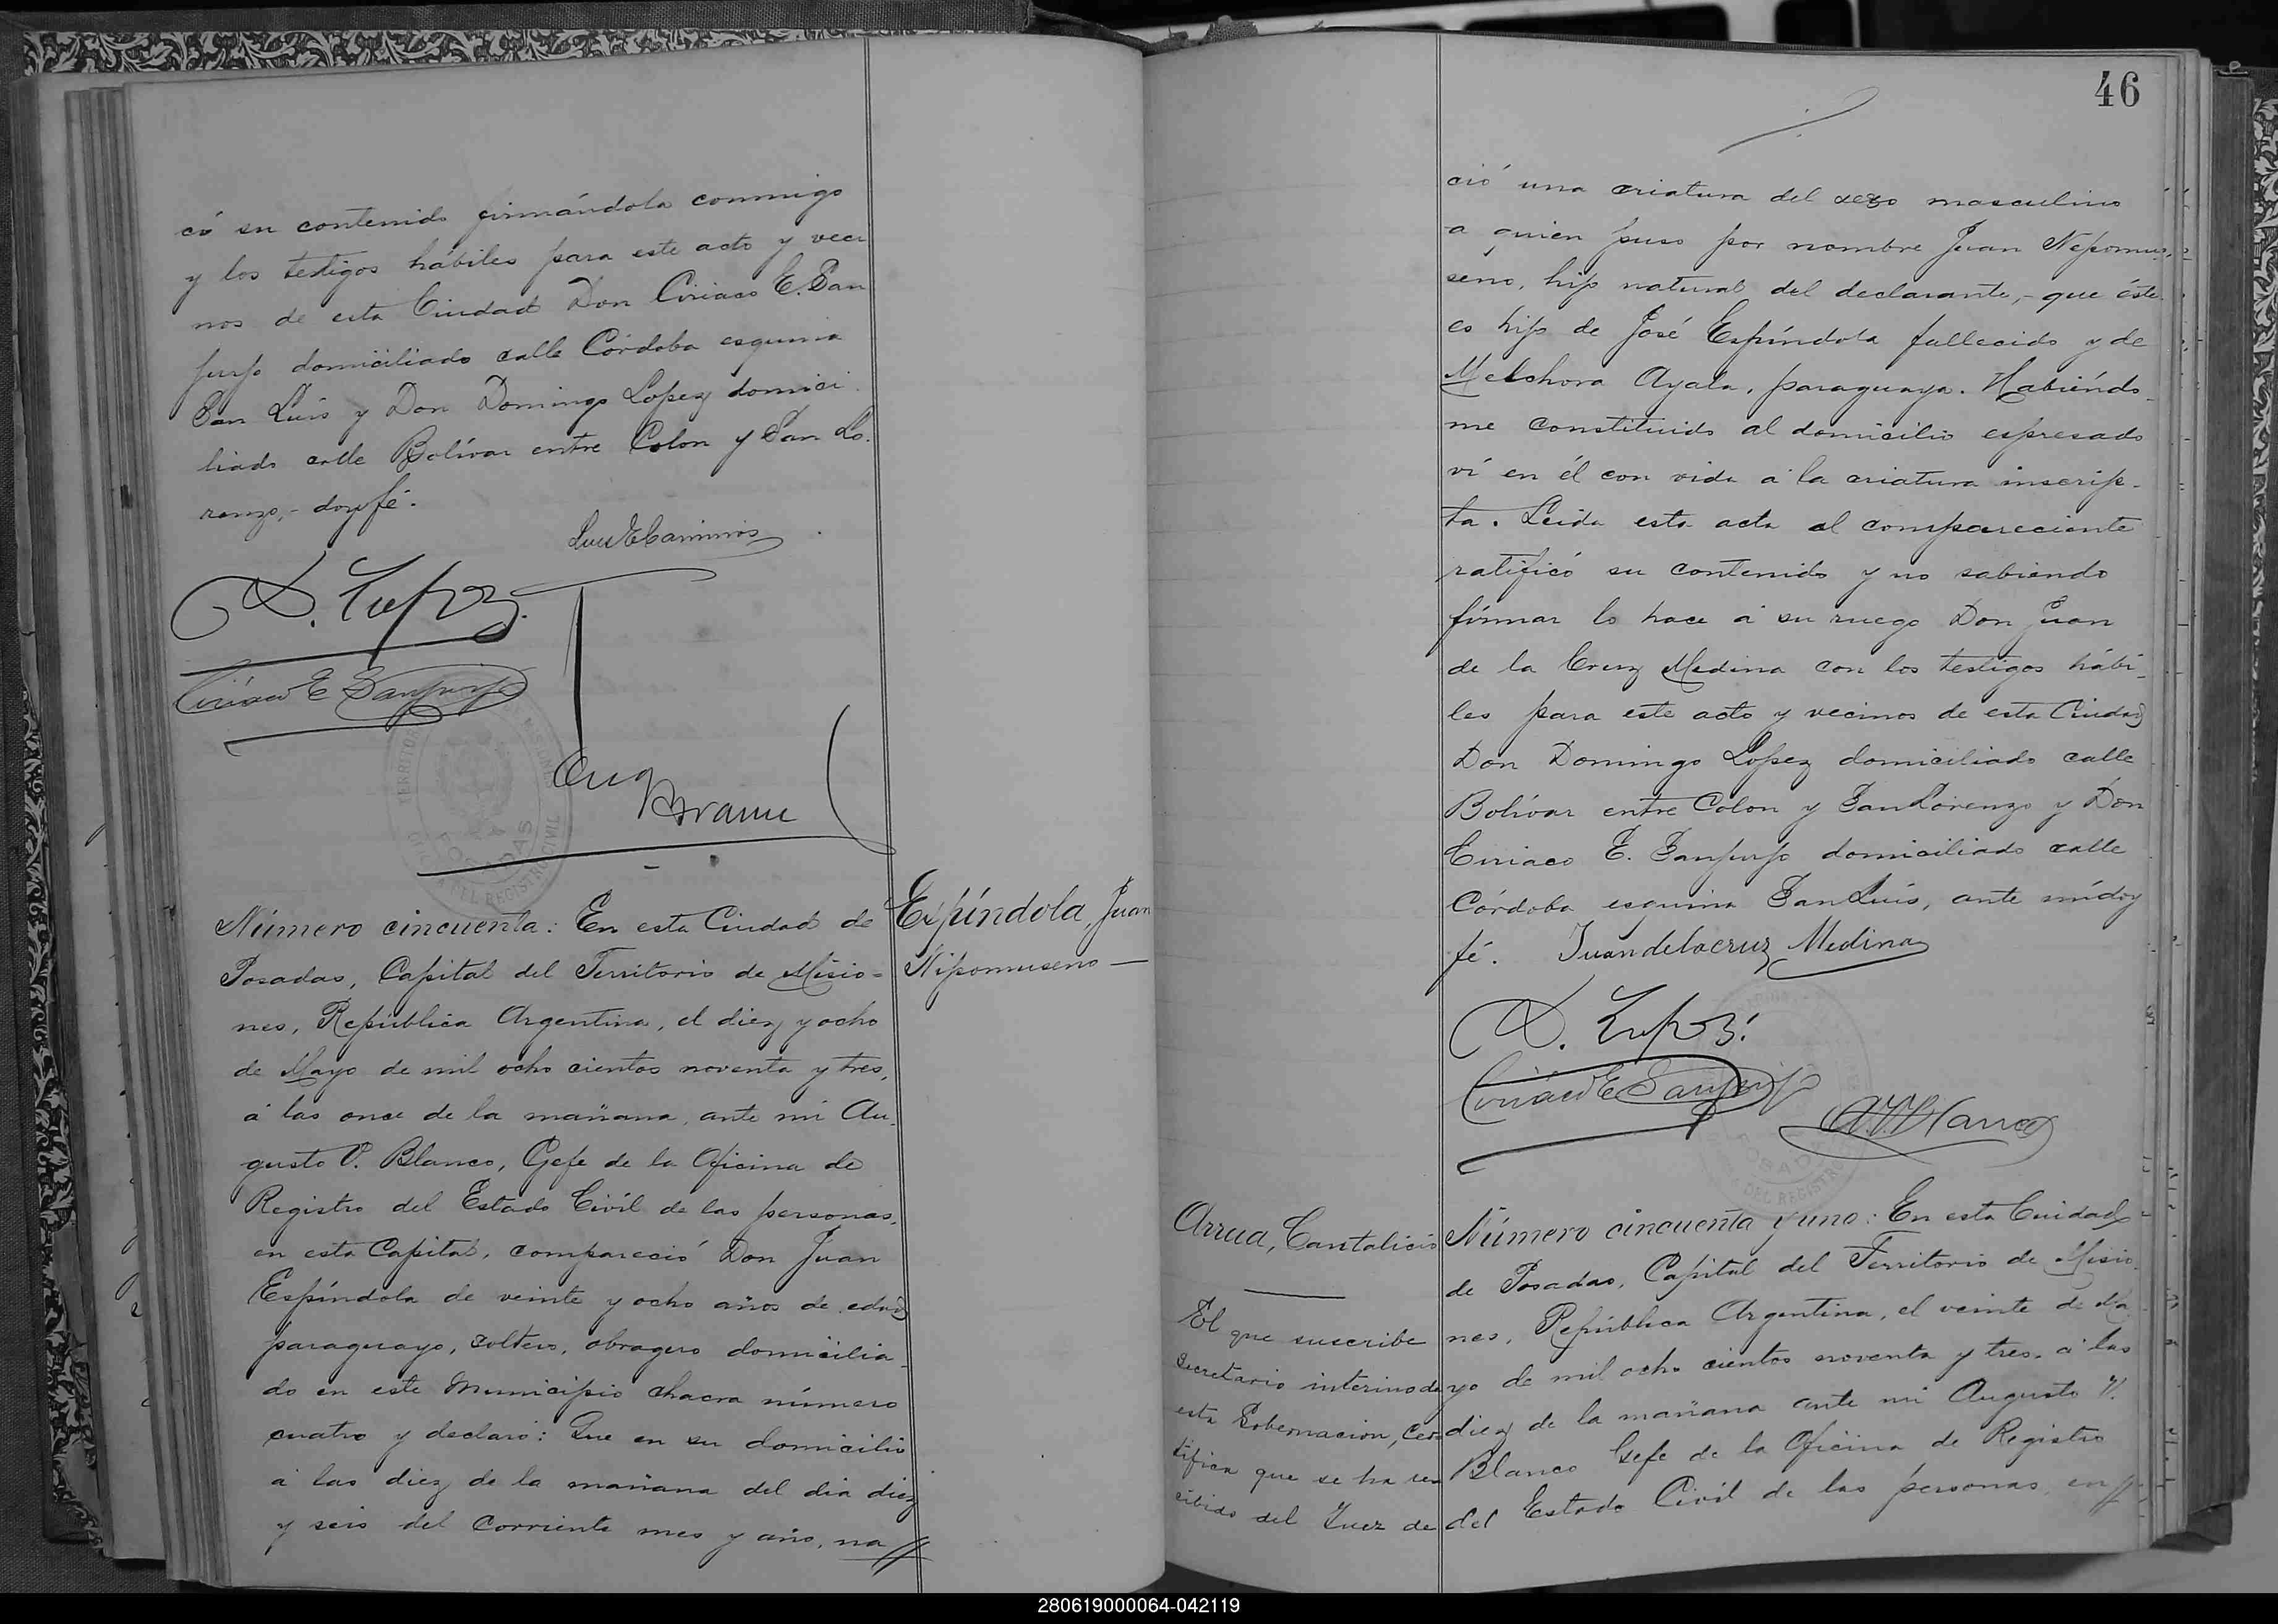 có su contenido firmándola conmigo
y los testigos hábiles para este acto y veci
nos de esta Ciudad Don Ciriaco E. San
jurjo domiciliado calle Córdoba esquina
San Luis y Don Domingo Lopez domici
liado calle Bolívar entre Colon y San Lo.
renzo,- doy fé.
Luis E Caminos
D. Lopez
Ciriaco E Sanjurjo
Número cincuenta: En esta Ciudad de
Posadas, Capital del Territorio de Misio=
nes, República Argentina, el diez y ocho
de Mayo de mil ocho cientos noventa y tres,
á las once de la mañana, ante mi Au
gusto V. Blanco, Gefe de la Oficina de
Registro del Estado Civil de las personas,
en esta Capital, compareció Don Juan
Espíndola de veinte y ocho años de edad
paraguayo, soltero, obragero domicilia
do en este Municipio chacra número
cuatro y declaró: Que en su domicilio
á las diez de la mañana del dia diez
y seis del corriente mes y año, na//
Espíndola, Juan
Nipomuseno —
46
ció una criatura del sexo masculino
a quien puso por nombre Juan Nepomu
seno, hijo natural del declarante,- que éste
es hijo de José Espíndola fallecido y de
Melchora Ayala, paraguaya. Habiéndo
me constituido al domicilio espresado
ví en él con vida á la criatura inscrip-
ta. Leida esta acta al compareciente
ratificó su contenido y no sabiendo
firmar lo hace á su ruego Don Juan
de la Cruz Medina con los testigos hábi-
les para este acto y vecinos de esta Ciudad
Don Domingo Lopez domiciliado calle
Bolívar entre Colon y San Lorenzo y Don
Ciriaco E. Sanjurjo domiciliado calle
Córdoba esquina San Luis, ante mí doy
fé. Juan delacruz Medina
D. Lopez
Ciriaco E Sanjurjo
A. V. Blanco
Arrua, Cantalicio
El que suscribe
secretario interino de
esta Gobernacion, Cer=
tifica que se ha re
cibido del Juez de
Número cincuenta y uno: En esta Ciudad
de Posadas, Capital del Territorio de Misio
nes, República Argentina, el veinte de Ma
yo de mil ocho cientos noventa y tres, á las
diez de la mañana ante mi Augusto V.
Blanco Gefe de la Oficina de Registro
del Estado Civil de las personas, en//
280619000064-042119